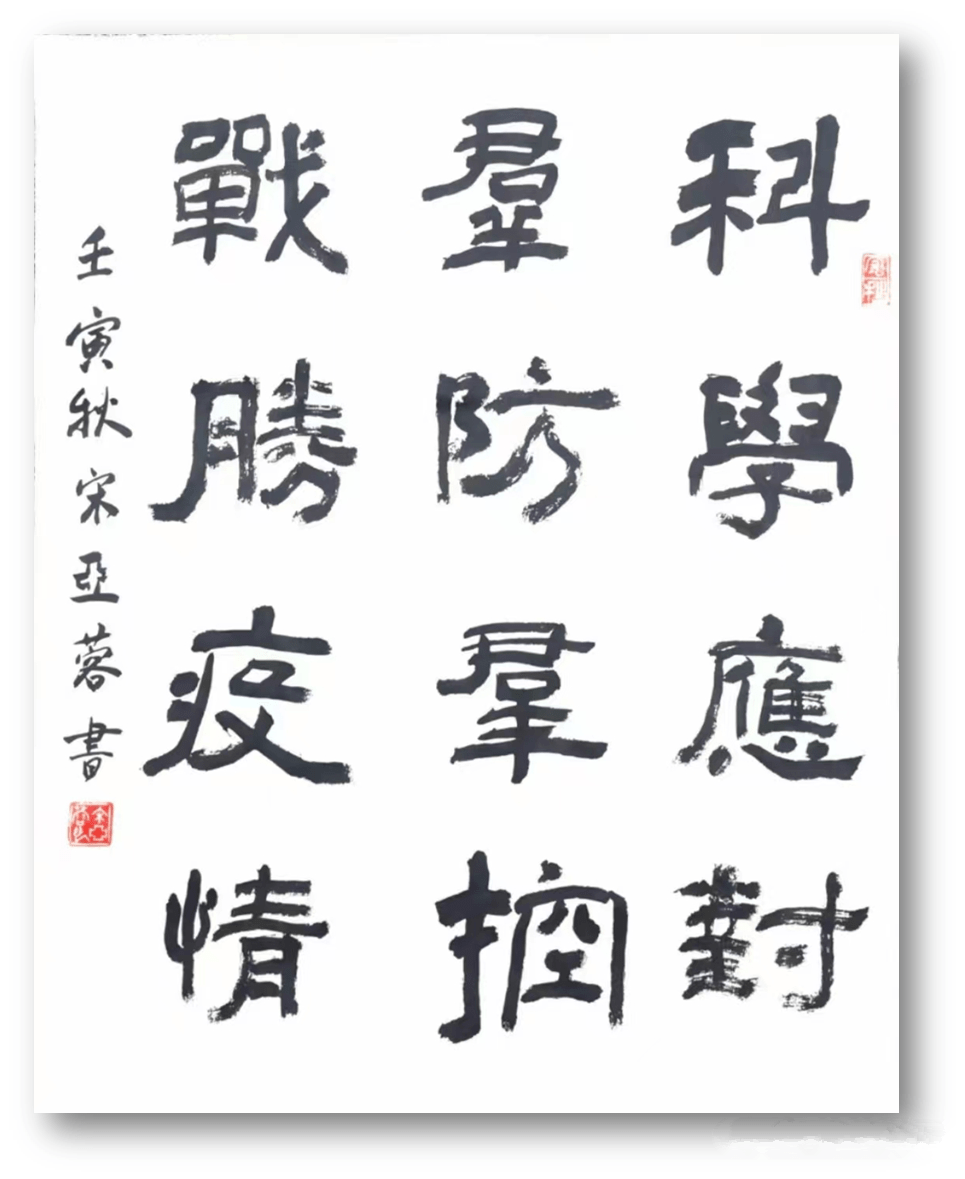 科學應對
羣防羣控
戰勝疫情
壬寅秋宋亞蓉書